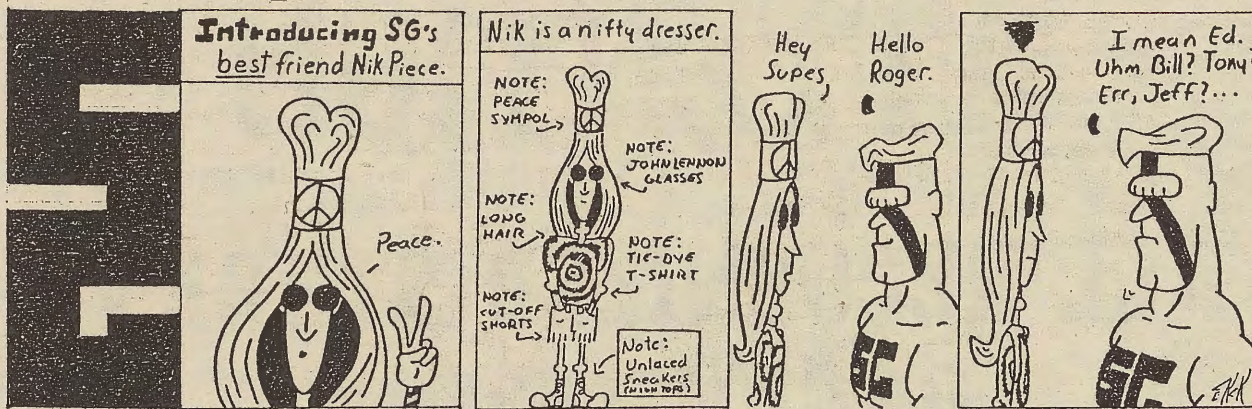 Introducing SG's
best friend Nik Piece.
Peace.
Nik is a nifty dresser.
NOTE:
PEACE
SYMPOL
NOTE:
JOHN LENNON
GLASSES
NOTE:
LONG
HAIR
NOTE:
TIE-DYE
T-SHIRT
NOTE:
CUT-OFF
SHORTS
Note:
Unlaced
Sneakers
(HIGH TOPS)
Hey
Supes,
Hello
Roger.
I mean Ed.
Uhm Bill? Tony?
Err, Jeff?...